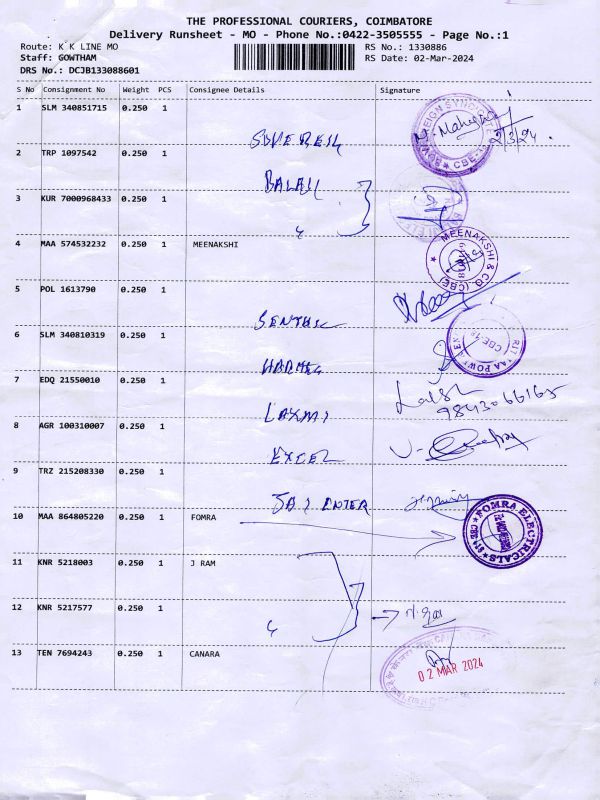 THE PROFESSIONAL COURIERS, COIMBATORE
Delivery Runsheet - MO - Phone No.:0422-3505555 - Page No.:1
Route: K K LINE MO RS No.: 1330886
Staff: GOWTHAM RS Date: 02-Mar-2024
DRS No.: DCJB133088601
S No Consignment No Weight PCS Consignee Details Signature
1 SLM 340851715 0.250 1
2/3/24.
2 TRP 1097542 0.250 1
BALAJI
3 KUR 7000968433 0.250 1
4 MAA 574532232 0.250 1 MEENAKSHI
MEENAKSHI & CO. (CBE)
5 POL 1613790 0.250 1
SENTHIL
6 SLM 340810319 0.250 1
7 EDQ 21550010 0.250 1
LAXMI
9843066165
8 AGR 100310007 0.250 1
EXCEL
9 TRZ 215208330 0.250 1
SAI ENTER
10 MAA 864805220 0.250 1 FOMRA
FOMRA ELECTRICALS
11 KNR 5218003 0.250 1 J RAM
12 KNR 5217577 0.250 1
13 TEN 7694243 0.250 1 CANARA
02 MAR 2024